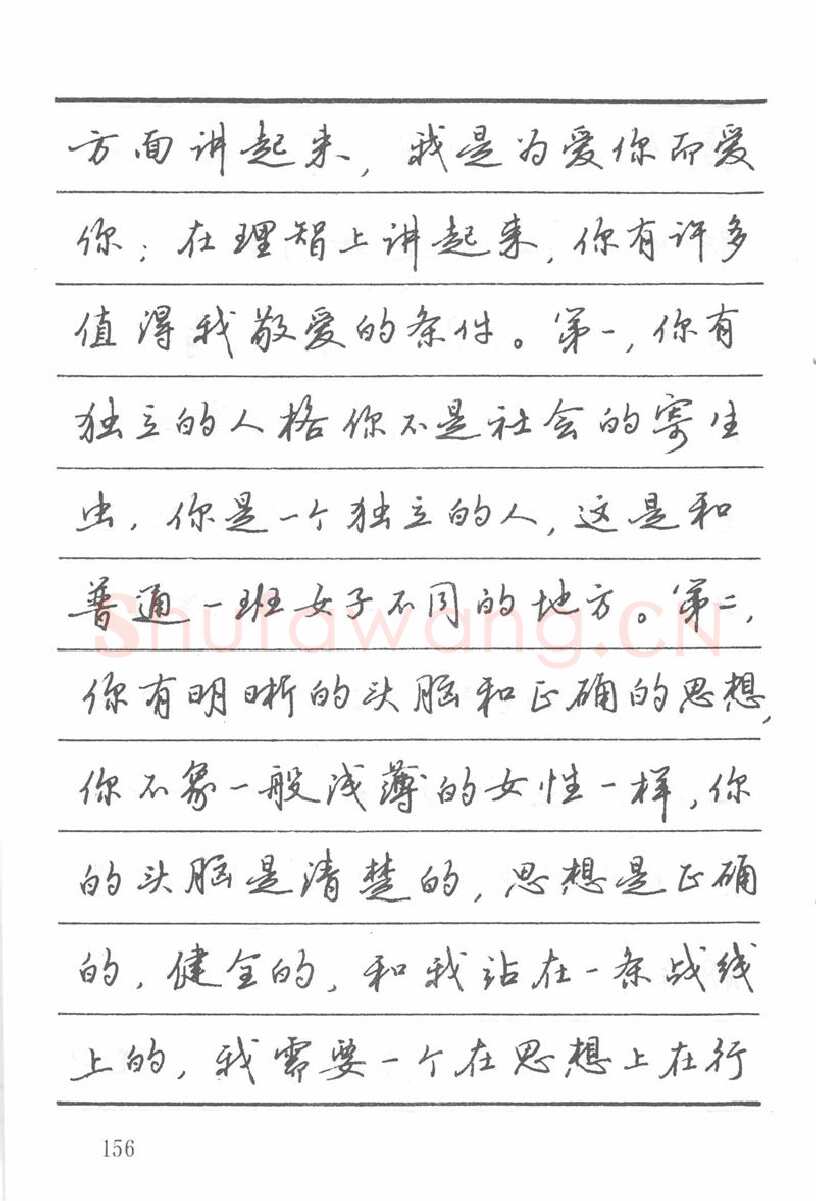 方面讲起来，我是为爱你而爱
你；在理智上讲起来，你有许多
值得我敬爱的条件。第一，你有
独立的人格你不是社会的寄生
虫，你是一个独立的人，这是和
普通一班女子不同的地方。第二，
你有明晰的头脑和正确的思想，
你不象一般浅薄的女性一样，你
的头脑是清楚的，思想是正确
的，健全的，和我站在一条战线
上的，我需要一个在思想上在行
156
Shufawang.CN